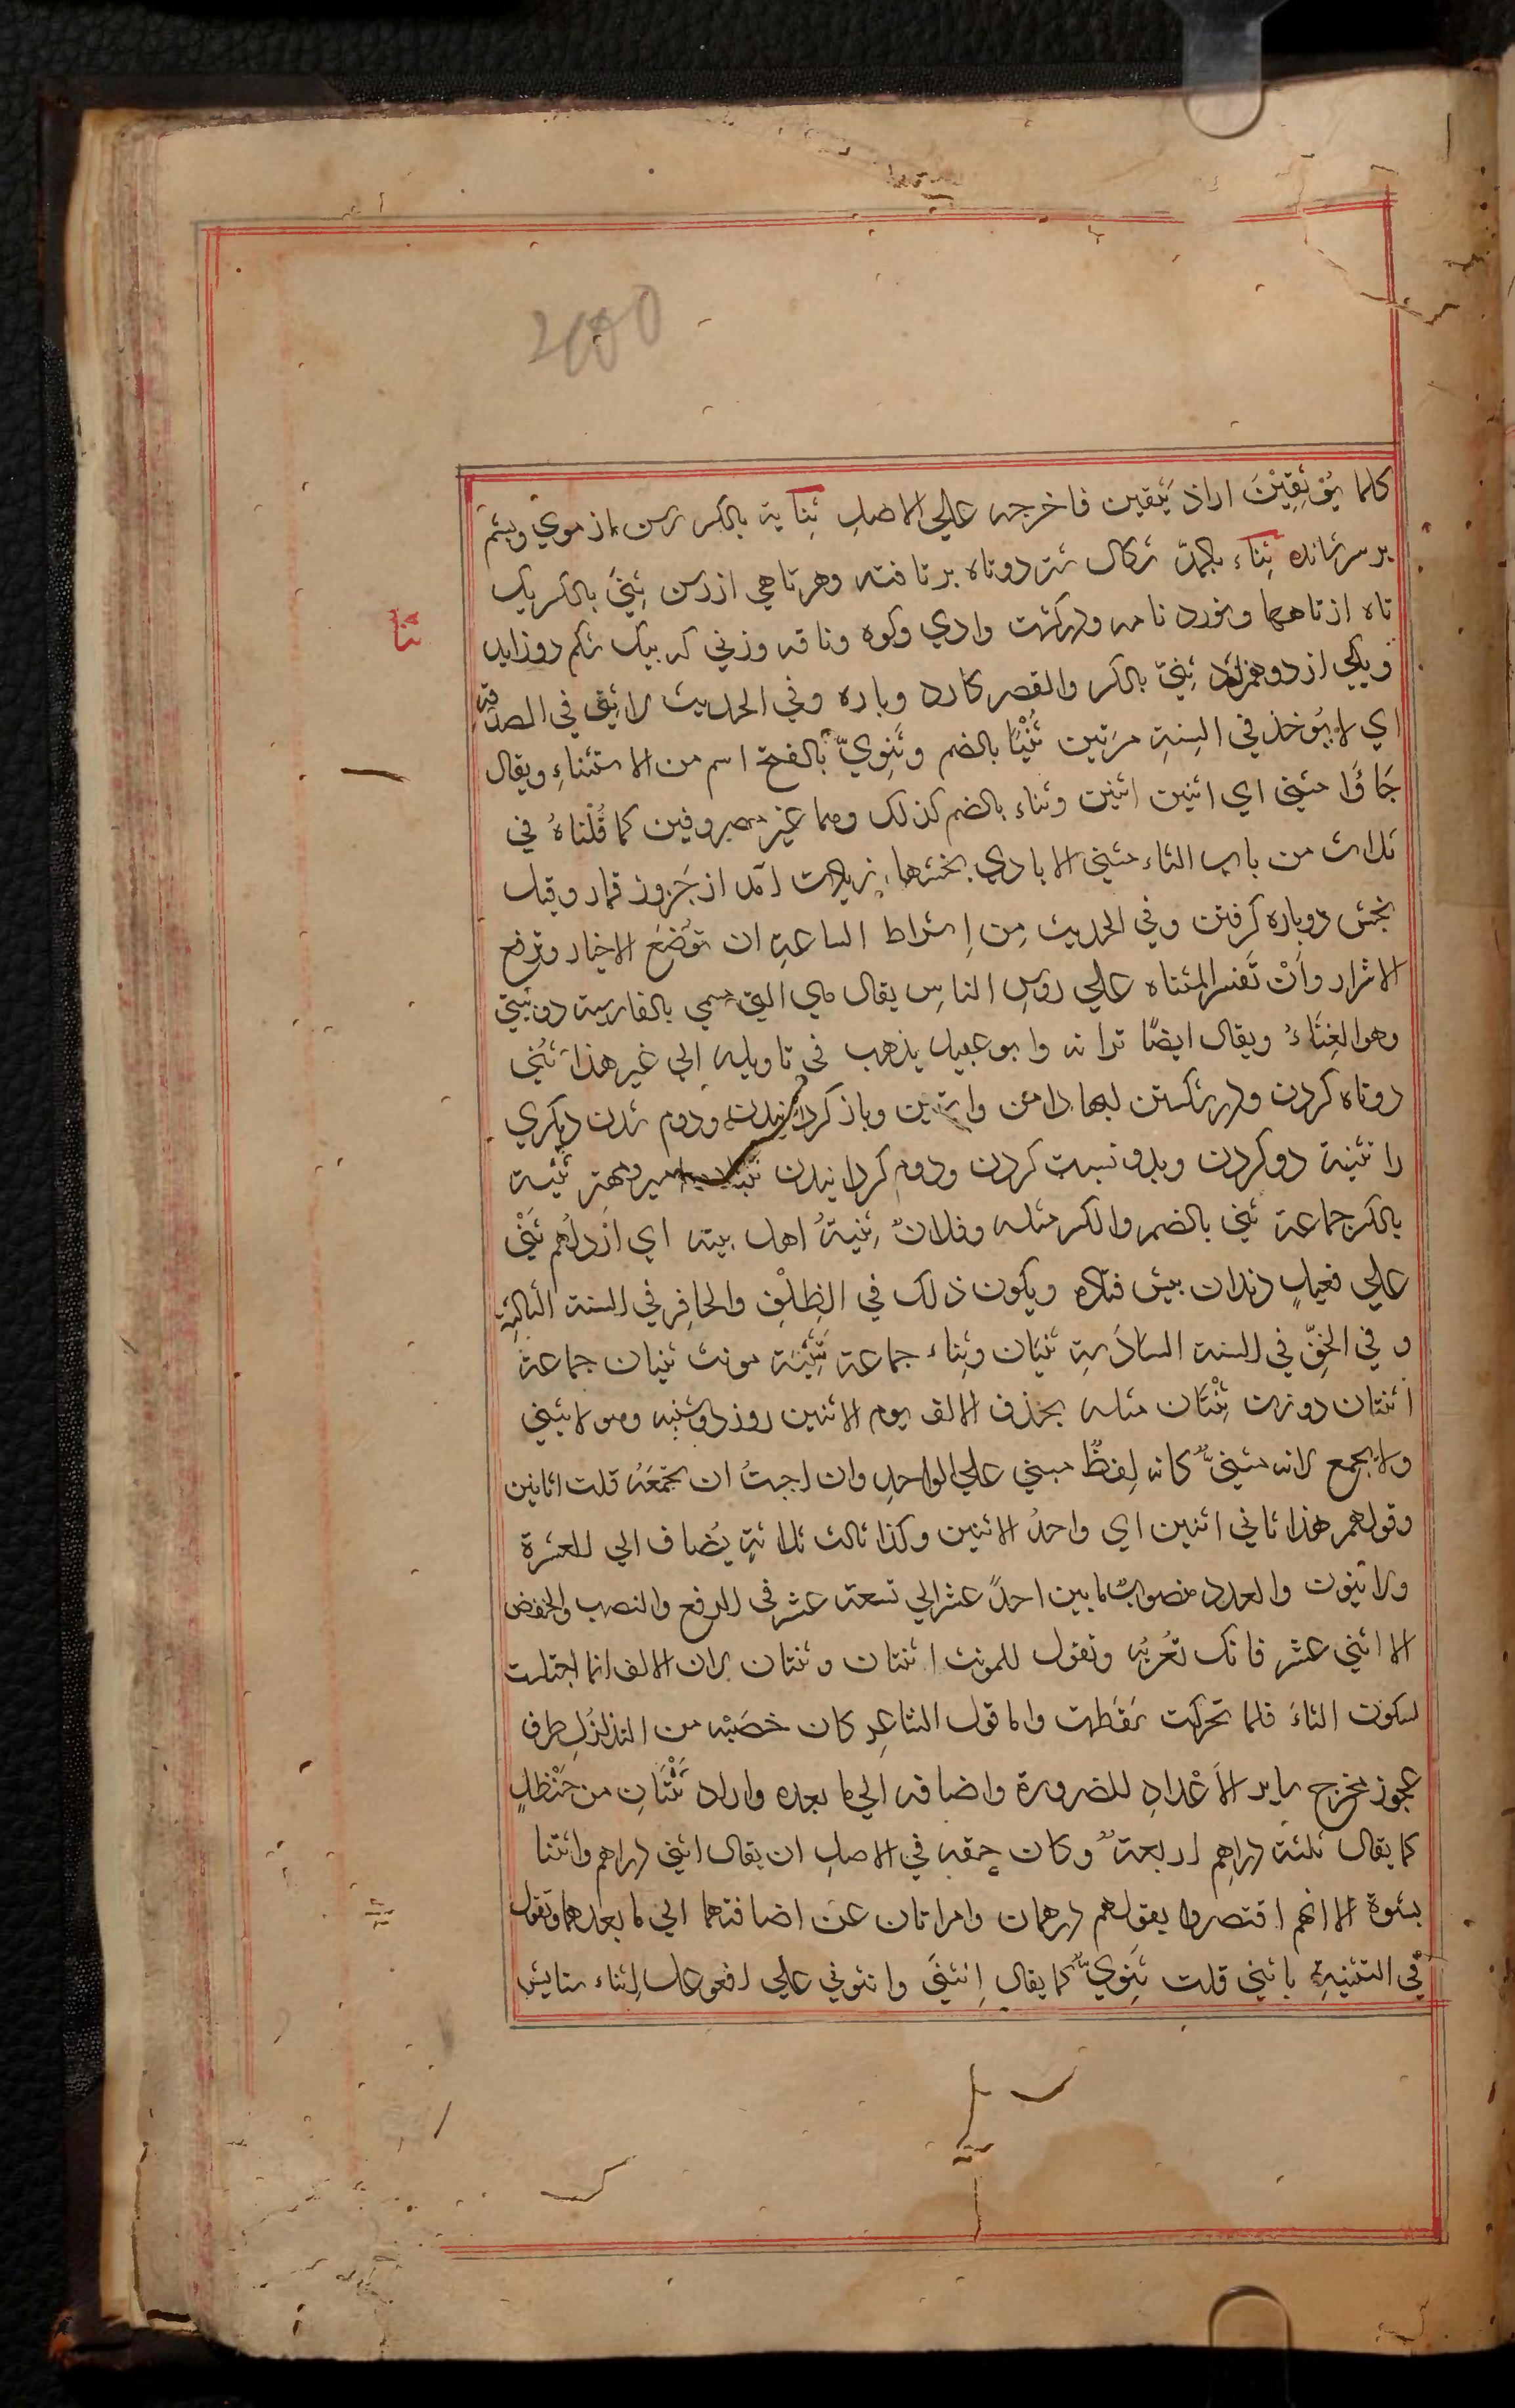 2100
کلما یُؤثفِیْنَ اراد یثفین فاخرجه علی الاصلِ ثِنایة بالکسر رسن از موی وپشم
بر سر شانده ثِناء بالمدّ شکال شتر دوتاه بر تافته وهرتاهی از رسن ثِنیَ بالکسر یک
تاه از تاهها ونورد نامه ودر کشت وادی وکوه وناقه وزنی که بیک شکم دو زاید
ثنا
ویکی از دو فرزند ثِنیً بالکسر والقصر کارد وباره وفی الحدیث لا ثِنی فی الصدقة
ای لا یُوخذ فی السنةِ مرّتین ثُنْیَا بالضم وثَنویّ بالفتح اسم من الاستثناءِ ویقال
جَاؤا مثنی ای اثنین اثنین وثناء بالضم کذلک وهما غیر مصروفین کما قُلناهُ فی
ثلاث من باب الثاء مثنی الایادی بخشها زیادت آمد از جَزورِ قمار وقیل
بخش دوباره گرفتن وفی الحدیث مِن اِشراط الساعةِ ان توُضَع الاخیار وترفع
الاشرار واَنْ تُقرا المثناه علی روسِ الناسِ یقال هی التی تسمی بالفارسیة دو بیتی
وهو الغِنَاءُ ویقال ایضًا ترانه وابو عبید یذهب فی تاویله الی غیر هذا ثَنْی
دوتاه کردن ودر شکستن لبهاء دامن وا ستین وباز گردانیدن ودوم شدن دیگری
را تثنیة دو کردن وبدو نسبت کردن ودوم گردانیدن ثنیان میر ومهتر ثنیة
بالکسر جماعة ثنی بالضم والکسر مثله وفلانٌ ثنیةُ اهل بیته ای ارذلُهم ثَنْی
علی فعیلٍ دندان پیش فتاده ویکون ذلک فی الظِلْفِ والحافِر فی السنة الثالثةِ
و فی الخفّ فی السنة السادَسةِ ثنیان وثِناء جماعة ثَنِیَّة مونث ثنیان جماعة
اثنتان دو زن ثِنْتَان مثله بحذف الالف یوم الاثنین روز دوشنبه وهو لا یثنی
ولا یجمع لانه مثنیًّ کانه لفظٌ مبنی علی الواحدِ وان احببتُ ان تجمَعَهُ قلت اثانین
وقولهم هذا ثانی اثنین ای واحدُ الاثنین وکذا ثالث ثلاثةٍ یُضاف الی العشرة
ولا ینون والعدد منصوبٌ مابین احدً عشر الی تسعة عشر فی الرفع والنصب والخفض
الا اثنی عشر فانک تُعْرِبُه وتقول للمونث اثنتان وثنتان لان الالف انما اجتلبت
لسکون الثاءَ فلما تحرکت سَقَطت واما قول الشاعِرِ کان خصَیْیْه من التذلذلِ ظرف
عجوز مخرج سایر الاَعْدادِ للضرورة واضافه الی ما بعده واراد ثَنْتَانِ من حَنْظلٍ
کما یقال ثلثة دراهم اربعةُ وکان حقه فی الاصلِ ان یقال اثنی دراهم واثنتا
نسوة الا انهم اقتصروا بقولهم درهمان وامراتان عن اضافتهما الی ما بعدهما وتقول
فی التثنیةِ یا ثنی قلت ثَنِویٌّ کما یقال اِثنیَّ واثنوی علی افعوعل اِثناء ستایش